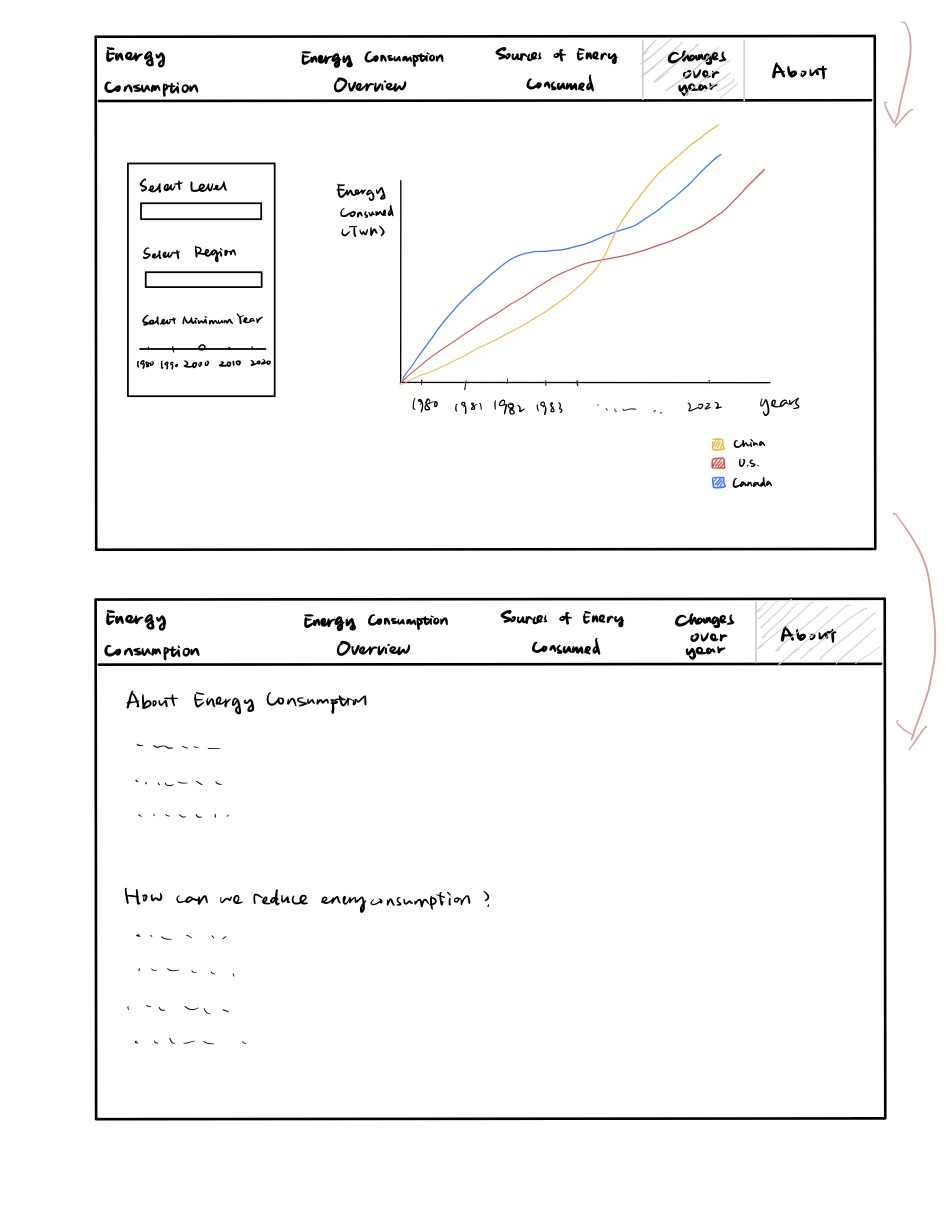 Energy
Consumption
Energy Consumption
Overview
Sources of Enery
Consumed
Changes
over
year
About
Select Level
Select Region
Select Minimum Year
1980 1990 2000 2010 2020
Energy
Consumed
(TWh)
1980 1981 1982 1983 ...... .. 2022 years
China
U.S.
Canada
Energy
Consumption
Energy Consumption
Overview
Sources of Enery
Consumed
Changes
over
year
About
About Energy Consumption
How can we reduce energy consumption ?